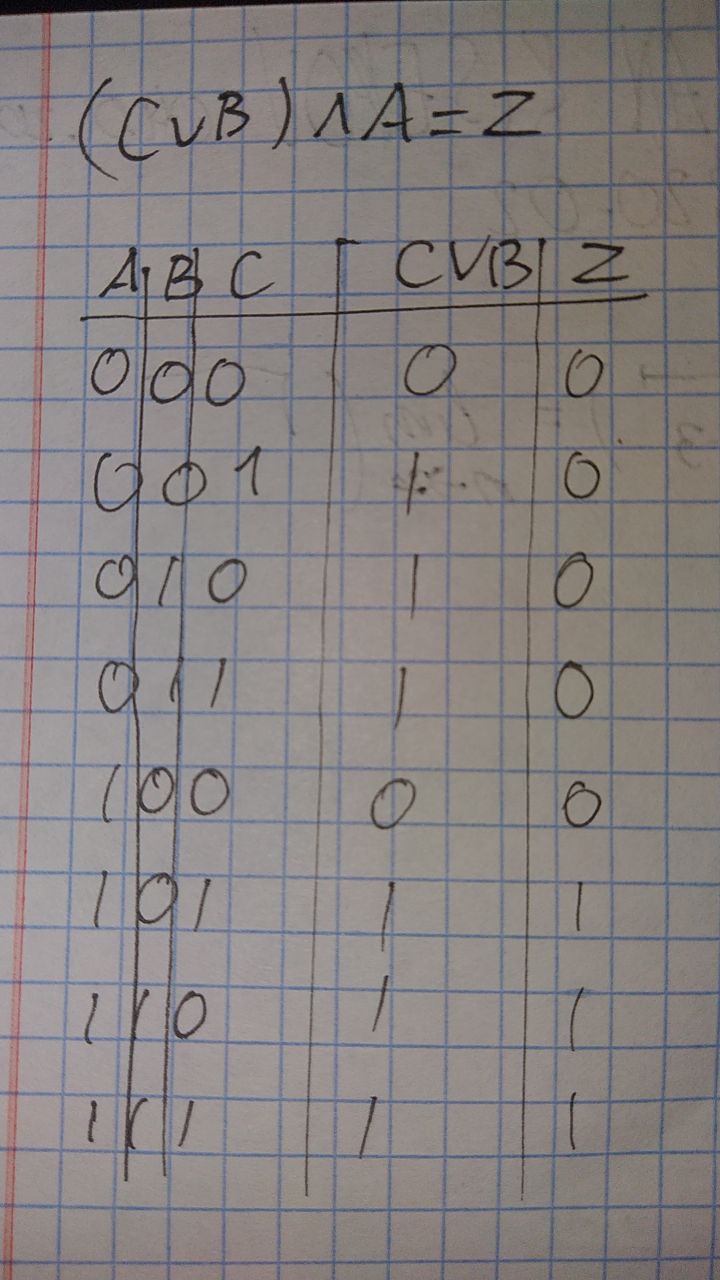 (CVB) ∧ A = Z
A B C CVB Z
0 0 0 0 0
0 0 1 1 0
0 1 0 1 0
0 1 1 1 0
1 0 0 0 0
1 0 1 1 1
1 1 0 1 1
1 1 1 1 1